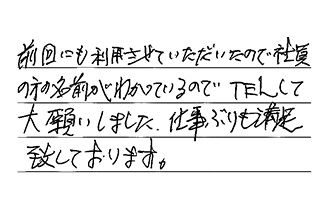 前回にも利用させていただいたので社員
の方の名前がわかっているので TELして
大願いしました、仕事ぶりも満足
致しております。